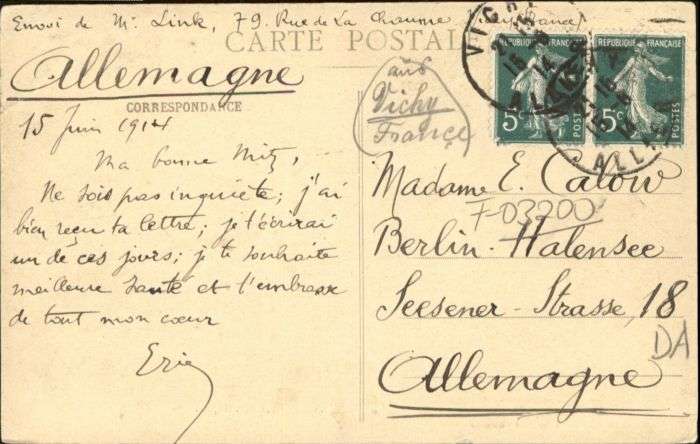 Envoi de Mr Link, 79 Rue de La Chaume
France)
CARTE POSTALE
Allemagne
CORRESPONDANCE
15 Juin 1914
Ma bonne Mitz,
Ne sois pas inquiète ; j'ai
bien reçu ta lettre ; je t'écrirai
un de ces jours ; je te souhaite
meilleure santé et t'embrasse
de tout mon cœur
Eric
aus
Vichy
France
REPUBLIQUE FRANÇAISE
5c
POSTES
REPUBLIQUE FRANÇAISE
5c
POSTES
VICHY
ALLIER
ALLIER
Madame E. Calow
F-03200
Berlin-Halensee
Seesener-Strasse, 18
DA
Allemagne